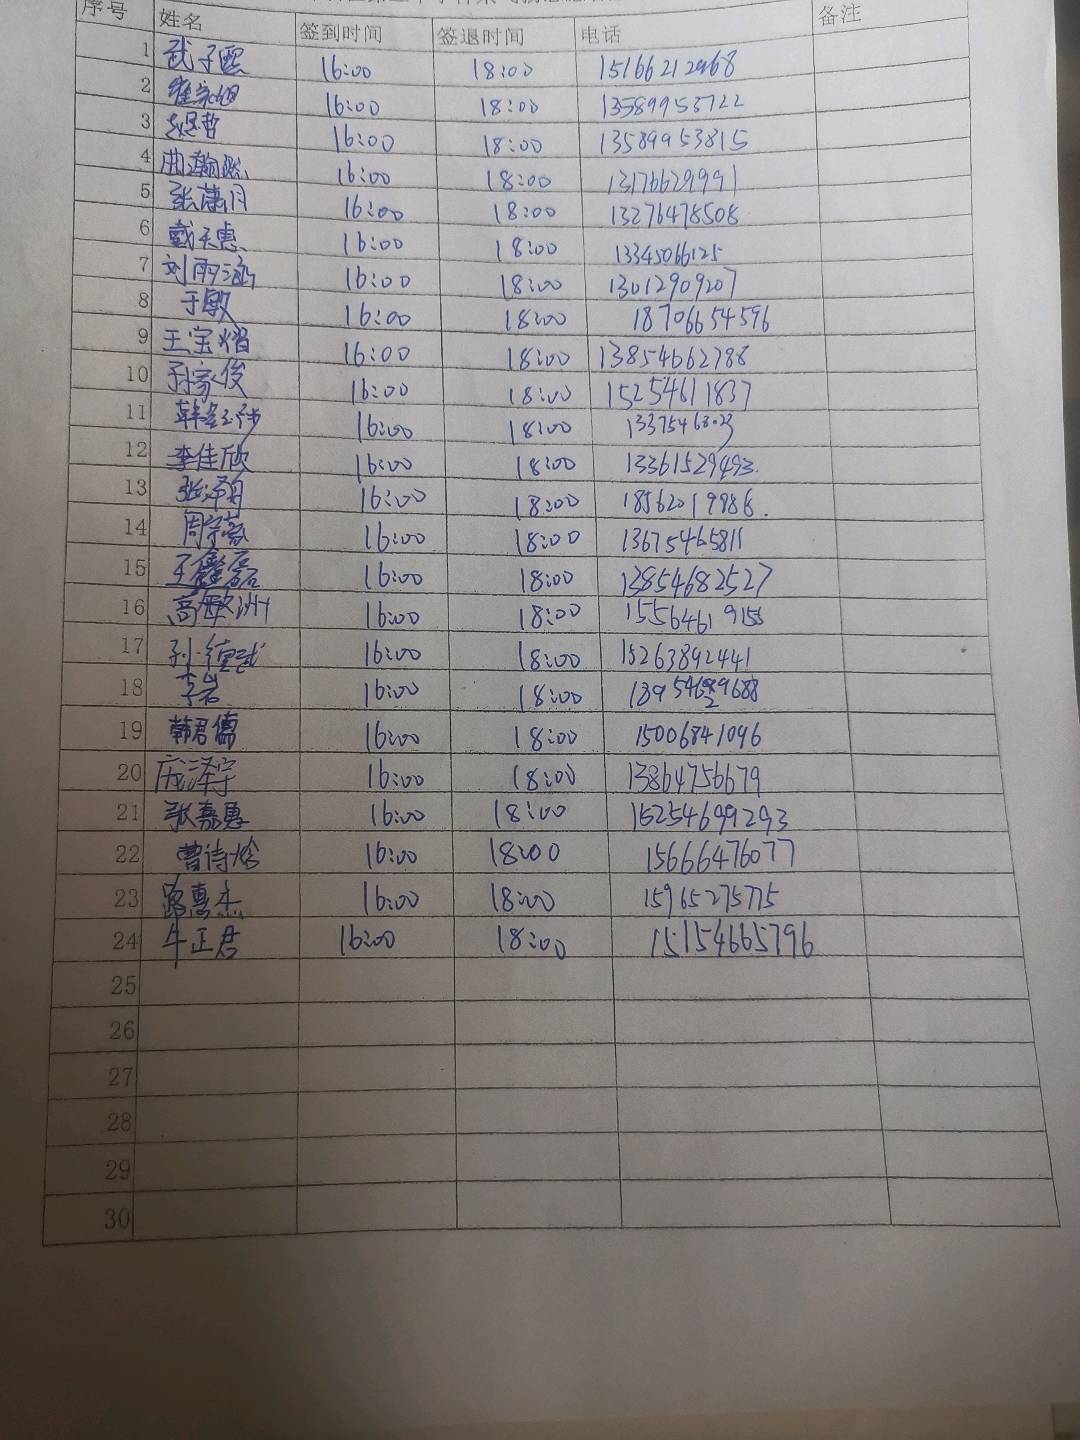 序号 姓名 签到时间 签退时间 电话 备注
1 武子熙 16:00 18:00 15166212968
2 16:00 18:00 13589953722
3 赵思哲 16:00 18:00 13589953815
4 曲瀚 16:00 18:00 13176629991
5 张潇月 16:00 18:00 13276478508
6 戴天惠 16:00 18:00 13345066125
7 刘雨涵 16:00 18:00 13012909207
8 于敏 16:00 18:00 18706654596
9 王宝熠 16:00 18:00 13854662788
10 孙家俊 16:00 18:00 15254611837
11 16:00 18:00
12 李佳欣 16:00 18:00 13361529493.
13 张泽舟 16:00 18:00 18562019986.
14 周宇豪 16:00 18:00 13675465811
15 王鑫磊 16:00 18:00 13854682527
16 高敏洲 16:00 18:00
17 孙德斌 16:00 18:00 15263892441
18 李岩 16:00 18:00
19 韩君儒 16:00 18:00 15006841096
20 庞泽宇 16:00 18:00 13864756679
21 张嘉惠 16:00 18:00 16254699293
22 曹诗晗 16:00 18:00 15666476077
23 路惠杰 16:00 18:00 15965275775
24 牛正君 16:00 18:00 15154665796
25
26
27
28
29
30